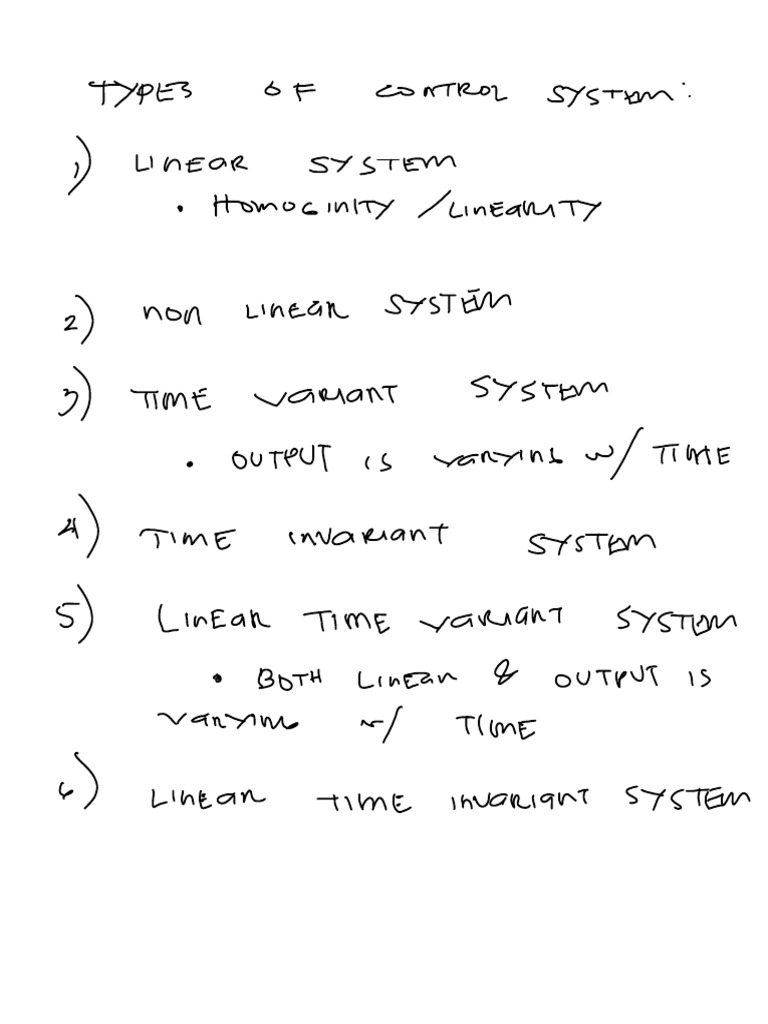 TYPES OF CONTROL SYSTEM:
1) LINEAR SYSTEM
• HOMOGINITY / LINEARITY
2) NON LINEAR SYSTEM
3) TIME VARIANT SYSTEM
• OUTPUT IS VARYING W/ TIME
4) TIME INVARIANT SYSTEM
5) LINEAR TIME VARIANT SYSTEM
• BOTH LINEAR & OUTPUT IS
VARYING W/ TIME
6) LINEAR TIME INVARIANT SYSTEM